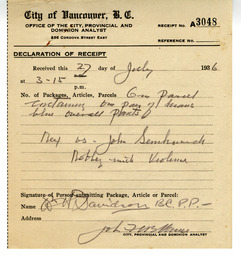 City of Vancouver, B. C.
OFFICE OF THE CITY, PROVINCIAL AND
DOMINION ANALYST
RECEIPT No. A3048
236 CORDOVA STREET EAST
REFERENCE No.
DECLARATION OF RECEIPT
Received this 27 day of July 1936
at 3-15 p.m.
No. of Packages, Articles, Parcels One parcel
containing one pair of mans
blue overall pants
Rex vs. John
Robbery with Violence
Signature of Person submitting Package, Article or Parcel:
Name Davidson B.C.P.P.
Address
CITY, PROVINCIAL AND DOMINION ANALYST